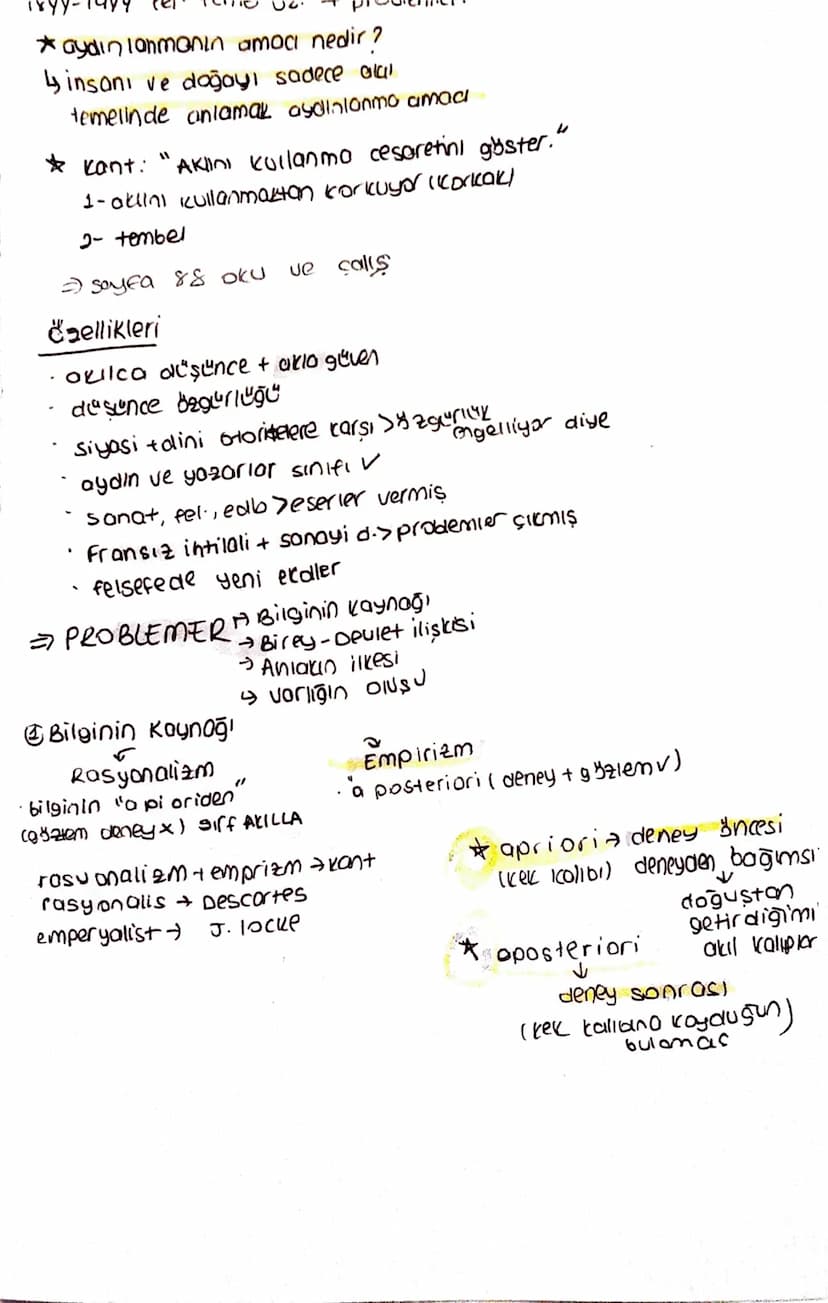 ★ aydınlanmanın amacı nedir?
↳ insanı ve doğayı sadece akıl
temelinde anlamak aydınlanma amacı
★ Kant: "Aklını kullanma cesaretini göster."
1- aklını kullanmaktan korkuyor (korkak)
2- tembel
⇒ sayfa 88 oku ve çalış
Özellikleri
· akılca düşünce + akla güven
· düşünce özgürlüğü
· siyasi + dini otoritelere karşı > özgürlük
engelliyor diye
· aydın ve yazarlar sınıfı ✓
· sanat, fel., edb > eserler vermiş
· Fransız ihtilali + sanayi d. > problemler çıkmış
· felsefede yeni ekoller
⇒ PROBLEMER → Bilginin kaynağı
→ Birey-Devlet ilişkisi
→ Ahlakın ilkesi
↳ varlığın oluşu
① Bilginin Kaynağı
Rasyonalizm
· bilginin "a pi oriden"
(gözlem deney x) sırf AKILLA
Empirizm
· "a posteriori (deney + gözlem ✓)
rasyonalizm + emprizm → kant
rasyonalis → Descartes
emperyalist → J. locke
★ apriori → deney öncesi
(kek kalıbı) deneyden bağımsı
doğuştan
getirdiğimi
akıl kalıplar
★ aposteriori
↓
deney sonrası
(kek kalıbına koyduğun)
bulamaç